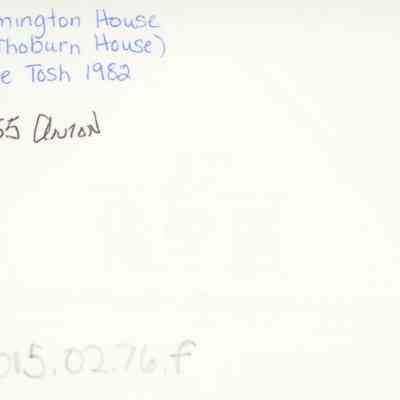 mington House
Thoburn House)
e Tosh 1982
55 Anton
015.02.76.f